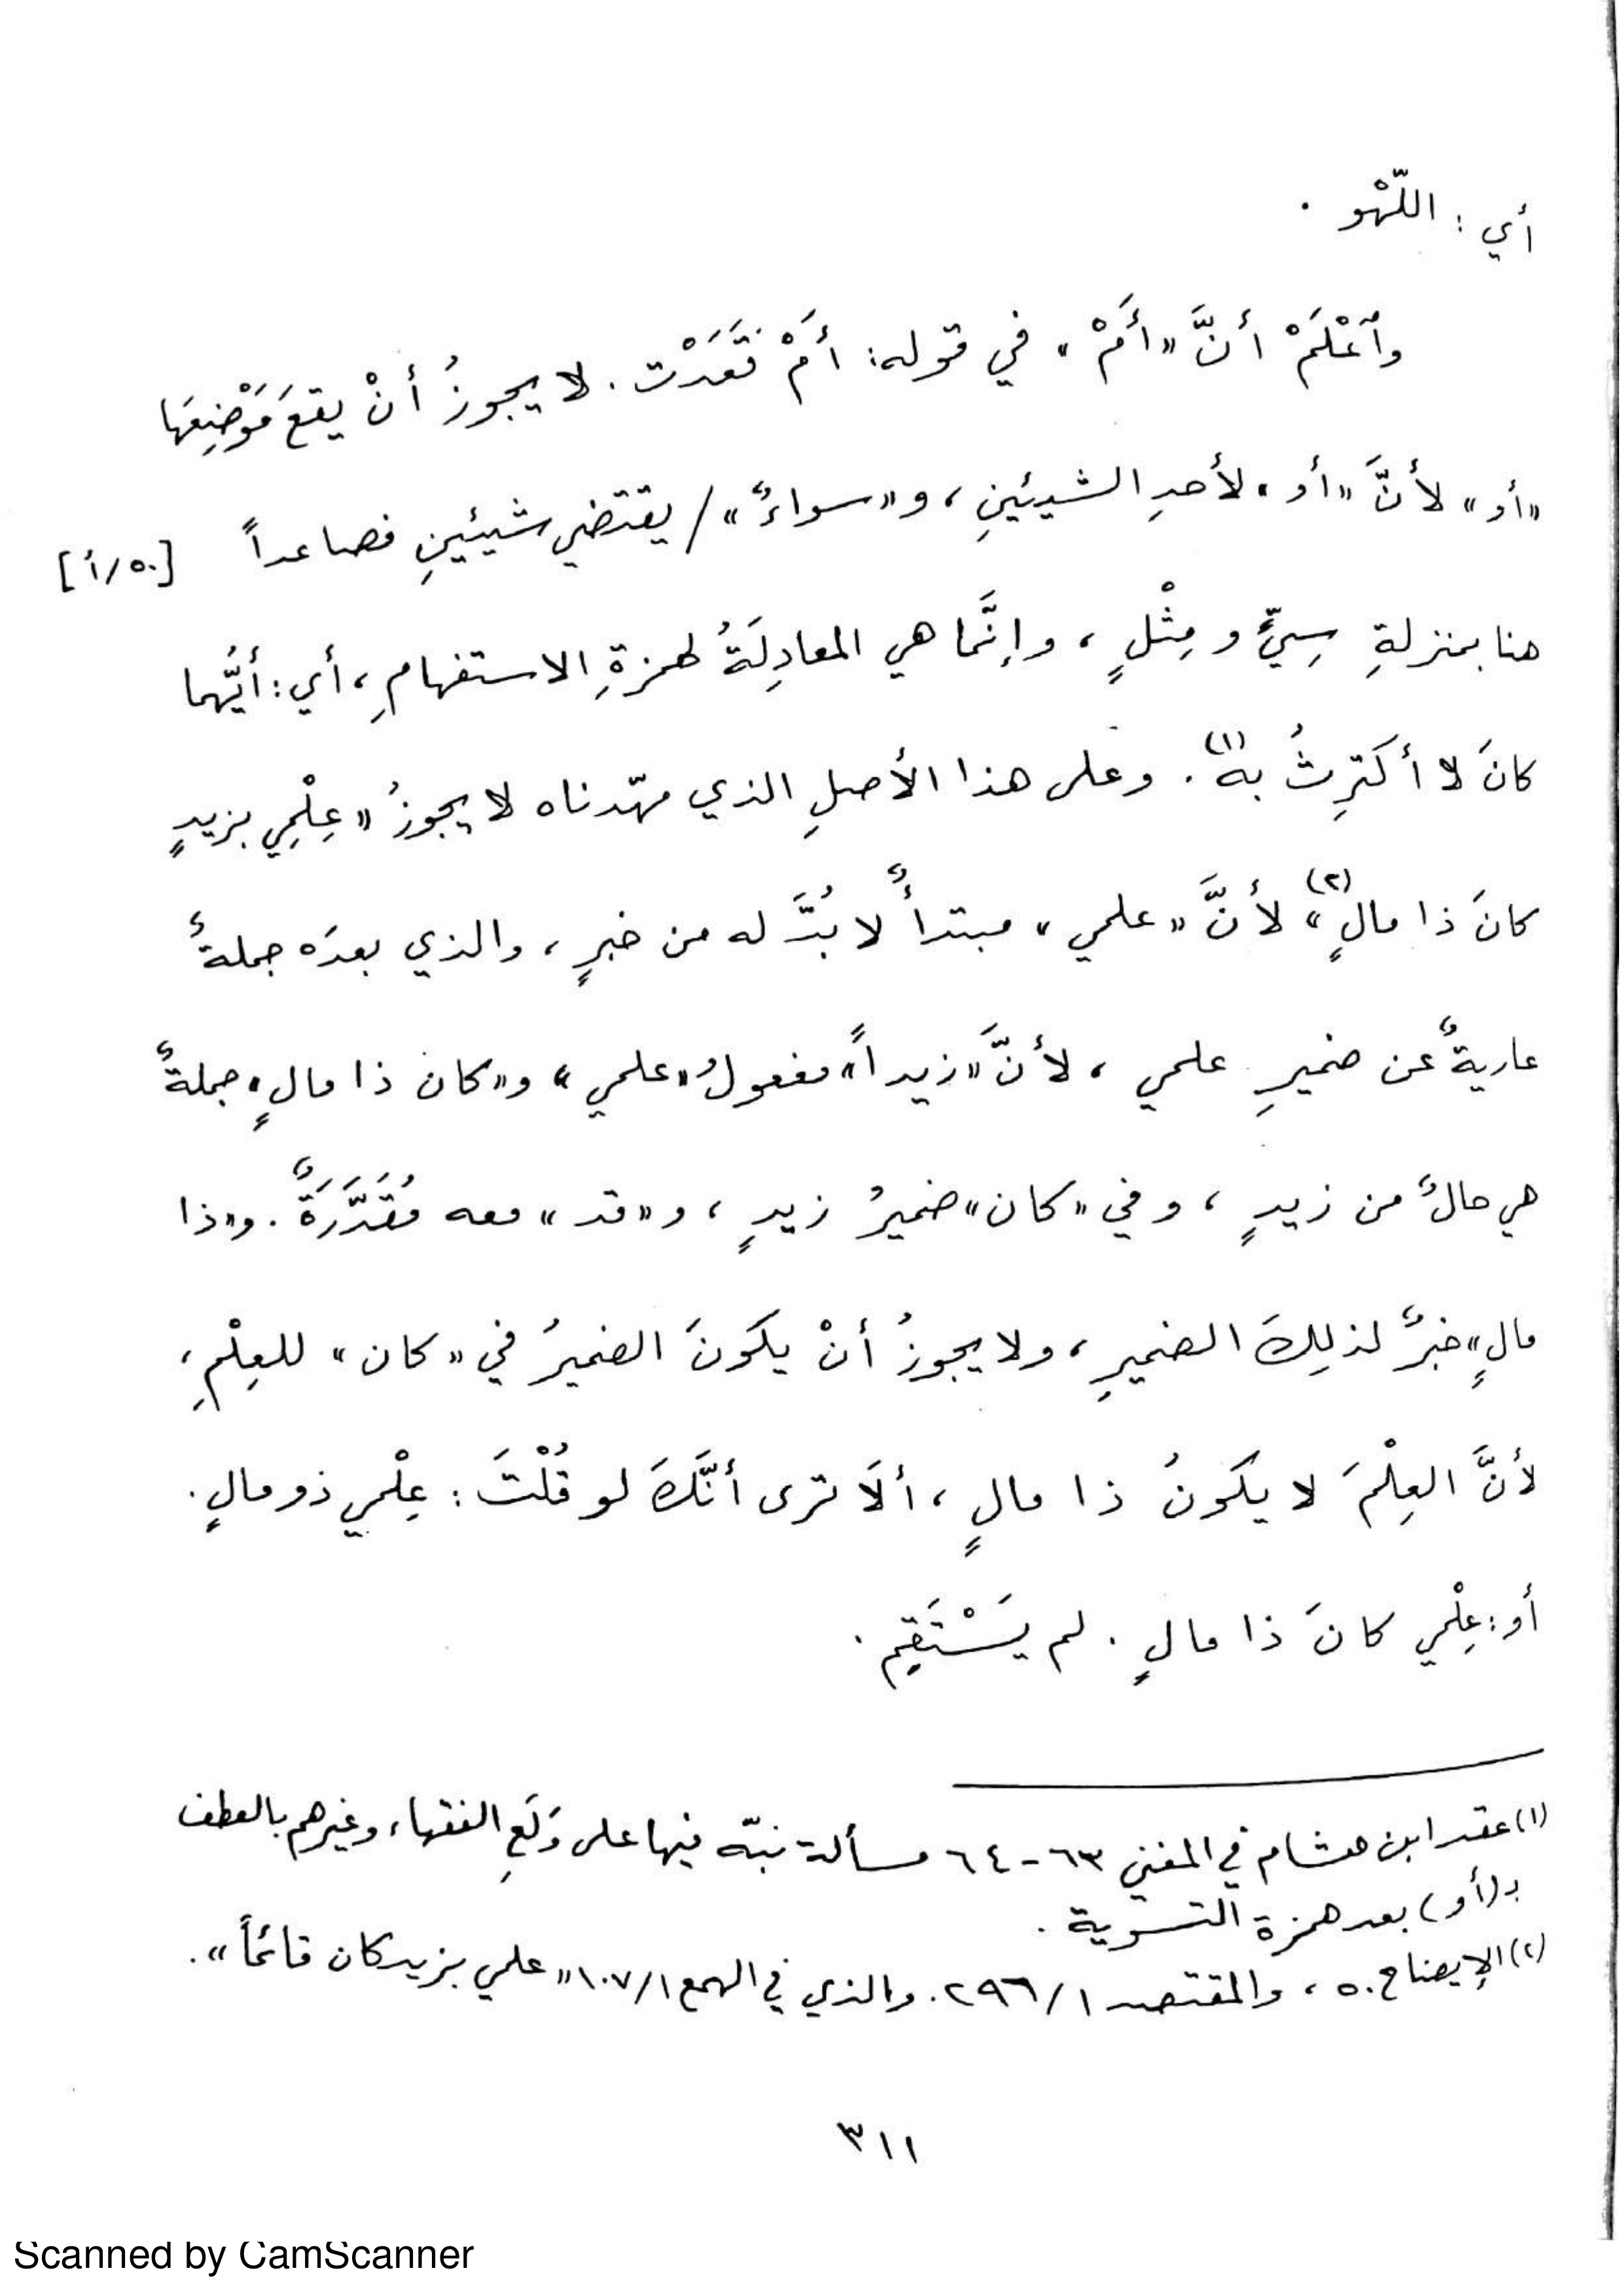 أي : اللّهْو .
وٱعْلَمْ أنَّ «أَمْ» في قوله: أَمْ تَقَعَّدَتْ . لا يجوزُ أنْ يقعَ مَوْضِعَها
«أو» لأنَّ «أو» لأحدِ الشيئينِ ، و«سواءٌ» / يقتضي شيئينِ فصاعداً [٥٠/أ]
هنا بمنزلةِ سِيٍّ و مِثْلٍ ، وإنَّما هي المعادِلَةُ لهمزةِ الاستفهامِ ، أي : أيُّهما
كانَ لا أكتَرِثُ به(١). وعلى هذا الأصلِ الذي مهّدناه لا يجوزُ «عِلْمِي بزيدٍ
كانَ ذا مالٍ(٢)» لأنَّ «علمي» مبتدأٌ لا بُدَّ له من خبرٍ ، والذي بعدَه جملةٌ
عاريةٌ عن ضميرِ علمي ، لأنَّ «زيداً» مفعولُ «علمي» و«كان ذا مالٍ» جملةٌ
هي حالٌ من زيدٍ ، وفي «كان» ضميرُ زيدٍ ، و«قد» معه مُقَدَّرَةٌ . و«ذا
مالٍ» خبرٌ لذلِكَ الضميرِ ، ولا يجوزُ أنْ يكونَ الضميرُ في «كان» للعِلْمِ ،
لأنَّ العِلْمَ لا يكونُ ذا مالٍ ، ألَا ترى أنَّكَ لو قُلْتَ : عِلْمي ذو مالٍ .
أو : عِلْمي كانَ ذا مالٍ . لم يَسْتَقِم .
(١) عقد ابن هشام في المغني ٦٣-٦٤ مسألة نبّه فيها على وَلَعِ الفقهاء وغيرهم بالعطف
بـ (أو) بعد همزة التسوية .
(٢) الإيضاح ٥٠ ، والمقتصد ٢٩٦/١ . والذي في الهمع ١٠٧/١ «علمي بزيد كان قائماً» .
٣١١
Scanned by CamScanner